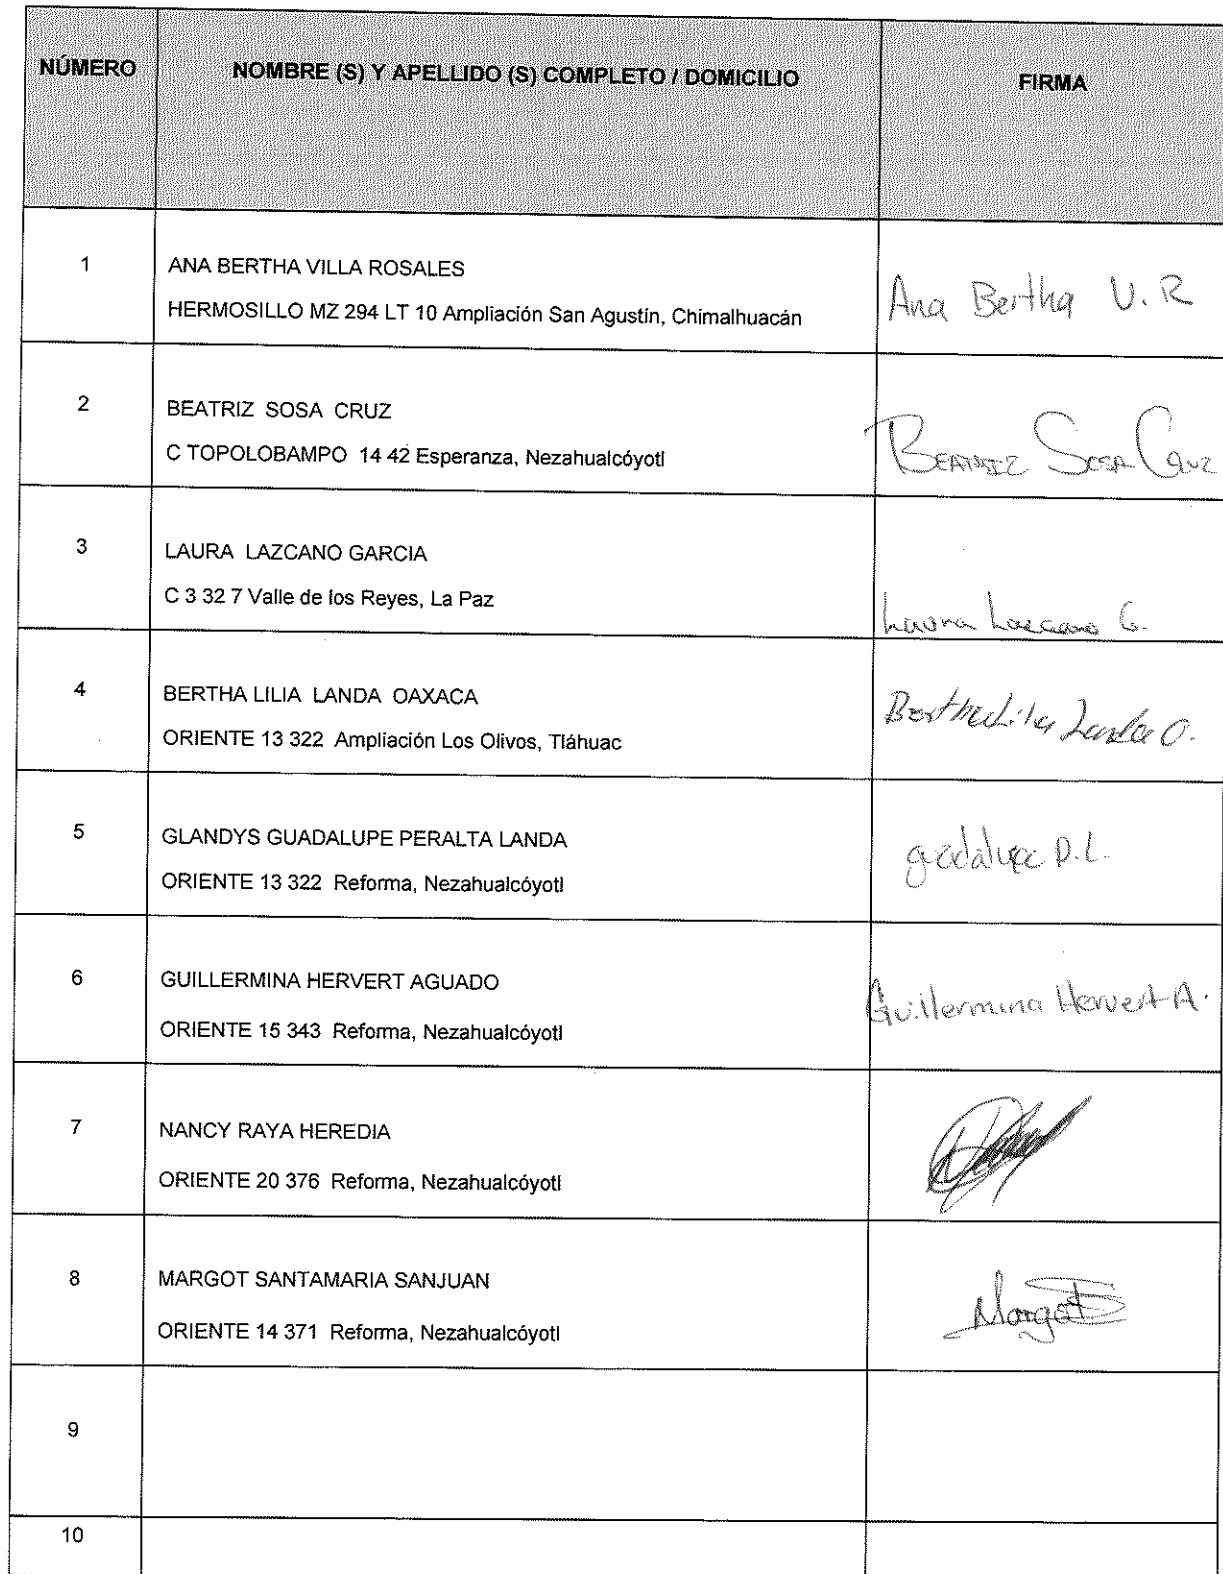 NÚMERO
NOMBRE (S) Y APELLIDO (S) COMPLETO / DOMICILIO
FIRMA
1
ANA BERTHA VILLA ROSALES
HERMOSILLO MZ 294 LT 10 Ampliación San Agustín, Chimalhuacán
Ana Bertha V. R
2
BEATRIZ SOSA CRUZ
C TOPOLOBAMPO 14 42 Esperanza, Nezahualcóyotl
BEATRIZ SOSA CRUZ
3
LAURA LAZCANO GARCIA
C 3 32 7 Valle de los Reyes, La Paz
Laura Lazcano G.
4
BERTHA LILIA LANDA OAXACA
ORIENTE 13 322 Ampliación Los Olivos, Tláhuac
Bertha Lilia Landa O.
5
GLANDYS GUADALUPE PERALTA LANDA
ORIENTE 13 322 Reforma, Nezahualcóyotl
guadalupe P.L.
6
GUILLERMINA HERVERT AGUADO
ORIENTE 15 343 Reforma, Nezahualcóyotl
Guillermina Hervert A.
7
NANCY RAYA HEREDIA
ORIENTE 20 376 Reforma, Nezahualcóyotl
8
MARGOT SANTAMARIA SANJUAN
ORIENTE 14 371 Reforma, Nezahualcóyotl
Margot S
9
10